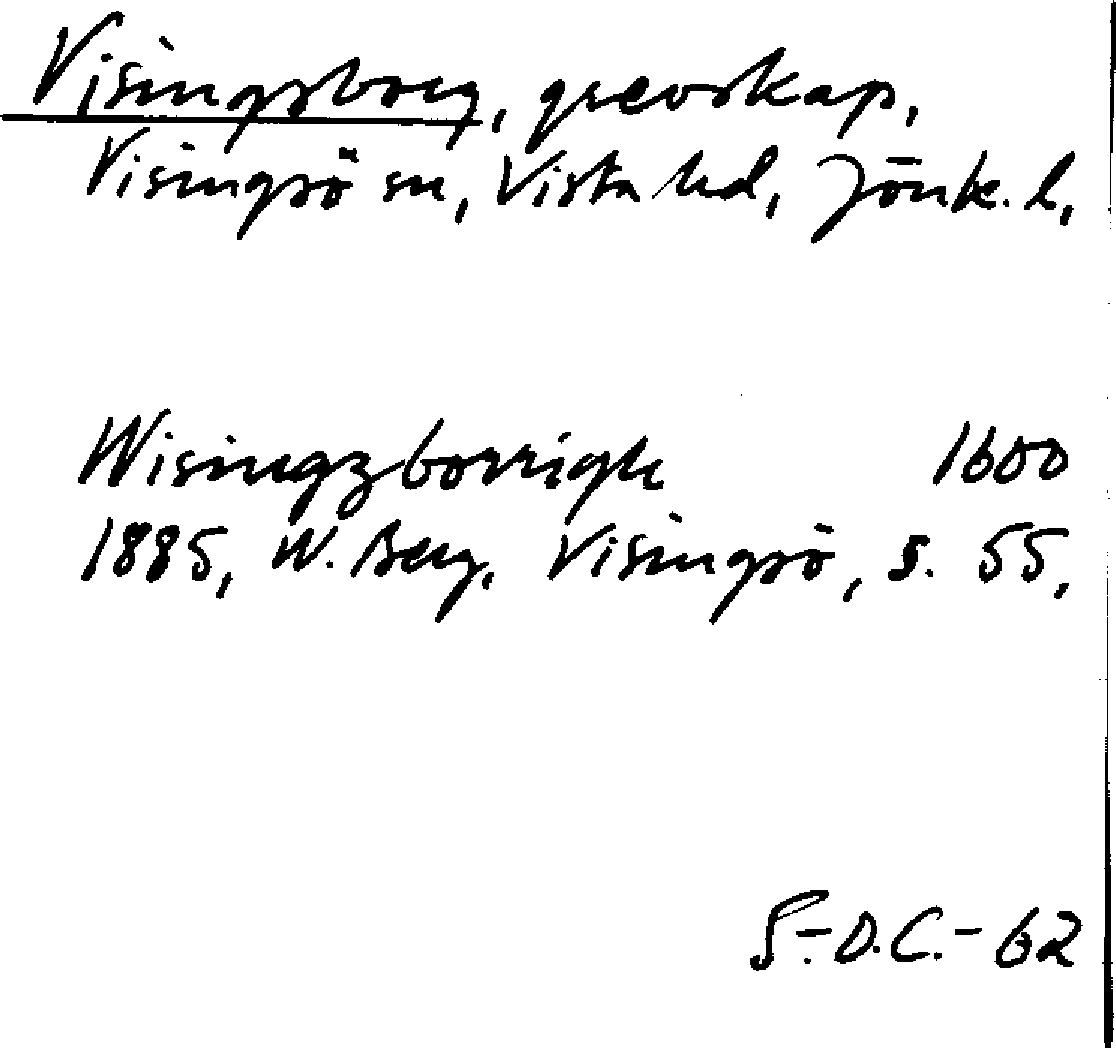 Visingsborg, grevskap,
Visingsö sn, Vista hd, Jönk. l,
Wisingzborrigh 1600
1885, W. Berg, Visingsö, s. 55,
S.-O.C.- 62